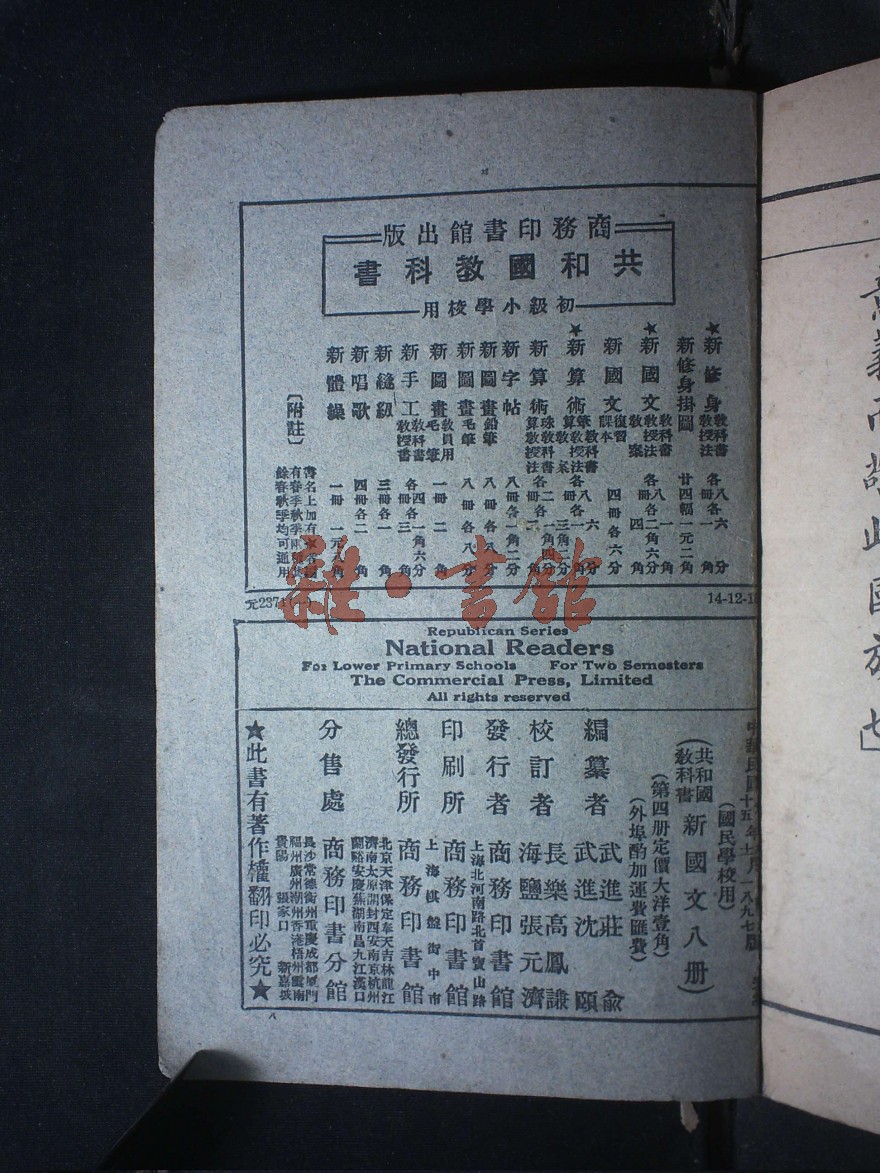 商務印書館出版
共和國教科書
初級小學校用
★新修身 教科書 教授法 各八 各一 六 分 角
新修身掛圖 廿四幅 一元二角
★新國文 教科書 教授法 教案 各八
新國文 復習課本 四冊 各六分
★新算術
新算術
新字帖 八冊 各一角二分
新圖畫 鉛筆 八冊 各八分
新圖畫 毛筆 八冊 各八分
新圖畫 教員用 毛筆 一冊 二角
新手工 教科書 教授書
新縫紉 三冊 各一角
新唱歌 四冊 各二角
新體操 一冊 一元八角
〔附註〕
書名上加有★
有春季秋季兩
餘春秋季均可通用
元2371
14-12-1
雜·書館
Republican Series
National Readers
For Lower Primary Schools For Two Semesters
The Commercial Press, Limited
All rights reserved
中華民國 十五年 一八九七版
(國民學校用)
(共和國教科書 新國文八册)
(第四册定價大洋壹角)
(外埠酌加運費匯費)
編纂者 武進莊 俞 武進沈 頤
校訂者 長樂高鳳謙 海鹽張元濟
發行者 商務印書館
印刷所 上海北河南路北首寶山路 商務印書館
總發行所 上海棋盤街中市 商務印書館
分售處 北京天津保定奉天吉林龍江 濟南太原開封西安南京杭州 蘭谿安慶蕪湖南昌九江漢口 商務印書分館
長沙常德衡州重慶成都廈門 福州廣州潮州香港梧州雲南 貴陽 張家口 新嘉坡
★此書有著作權翻印必究★
八
義而敬此國旗也」